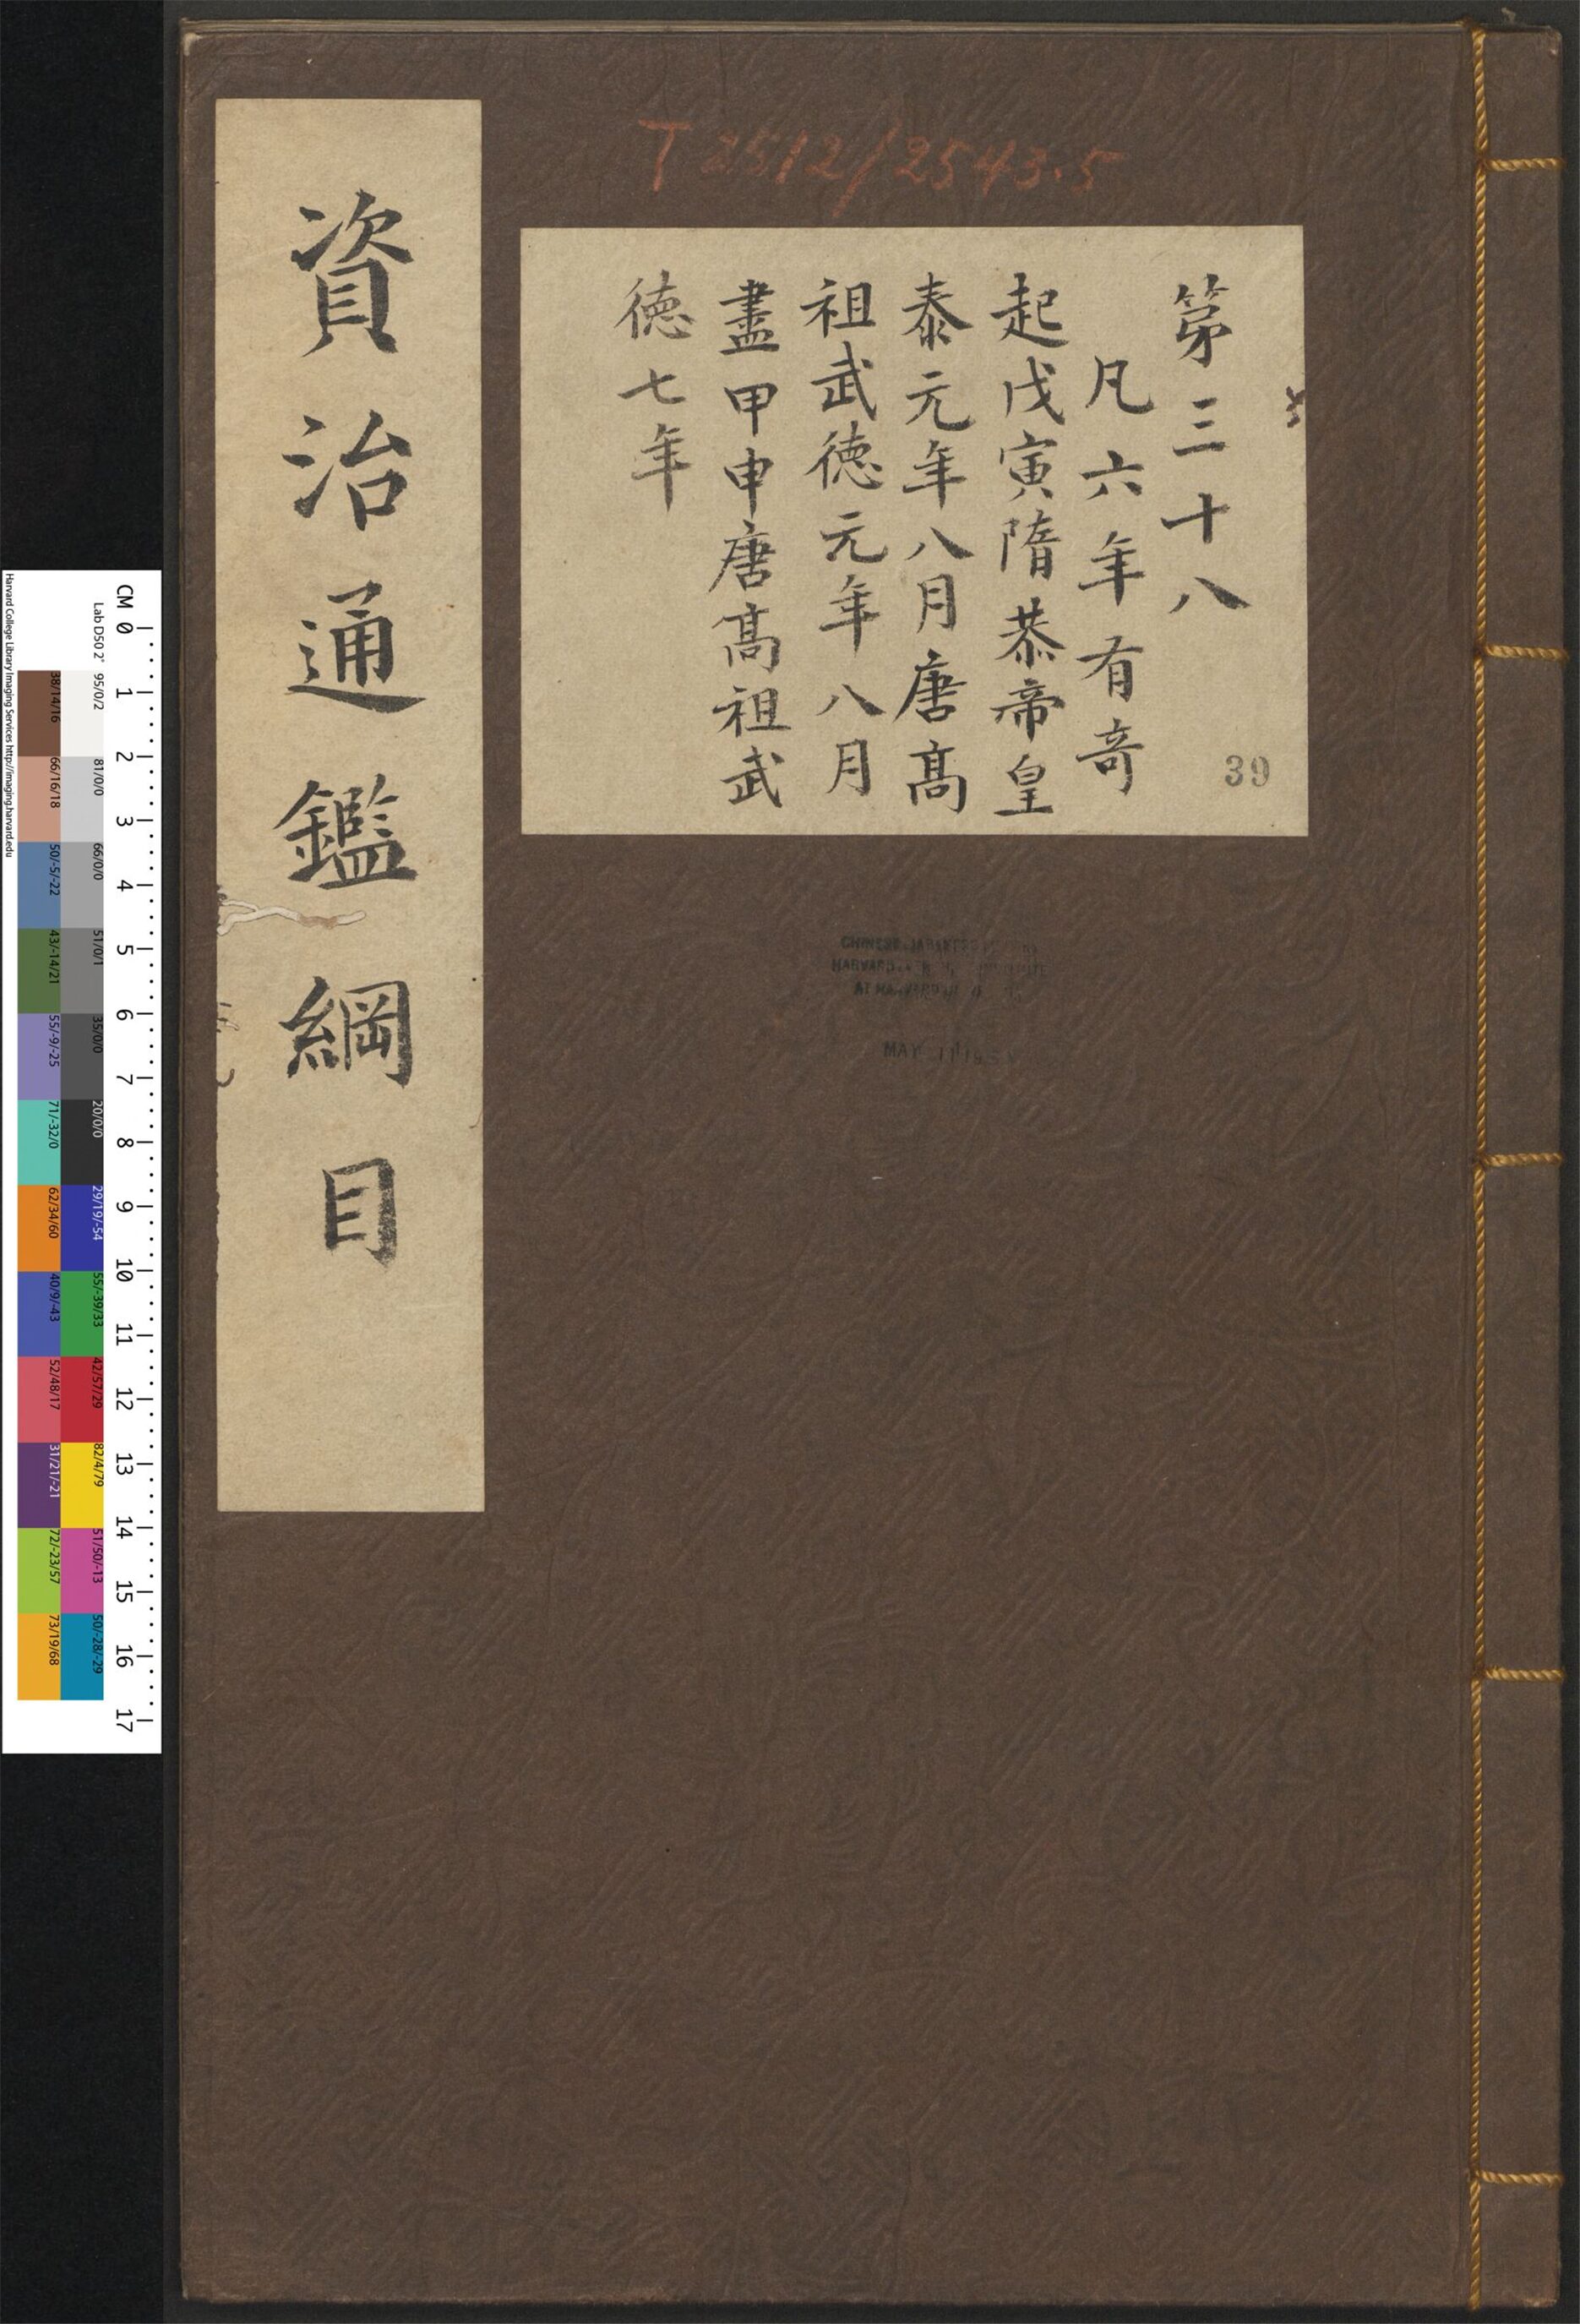 T 2512/2543.5
第三十八
凡六年有奇
起戊寅隋恭帝皇
泰元年八月唐髙
祖武徳元年八月
盡甲申唐髙祖武
徳七年
39
資治通鑑綱目
CHINESE-JAPANESE
HARVARD
AT HARVARD
MAY
CM 0 1 2 3 4 5 6 7 8 9 10 11 12 13 14 15 16 17
Lab D50 2° 95/0/2 81/0/0 66/0/0 51/0/1 35/0/0 20/0/0 29/19/-54 55/-39/33 42/57/29 82/4/79 51/50/-13 50/-28/-29
38/14/16 66/16/18 50/-5/-22 43/-14/21 55/-9/-25 71/-32/0 62/34/60 40/9/-43 52/48/17 31/21/-21 72/-23/57 73/19/68
Harvard College Library Imaging Services http://imaging.harvard.edu